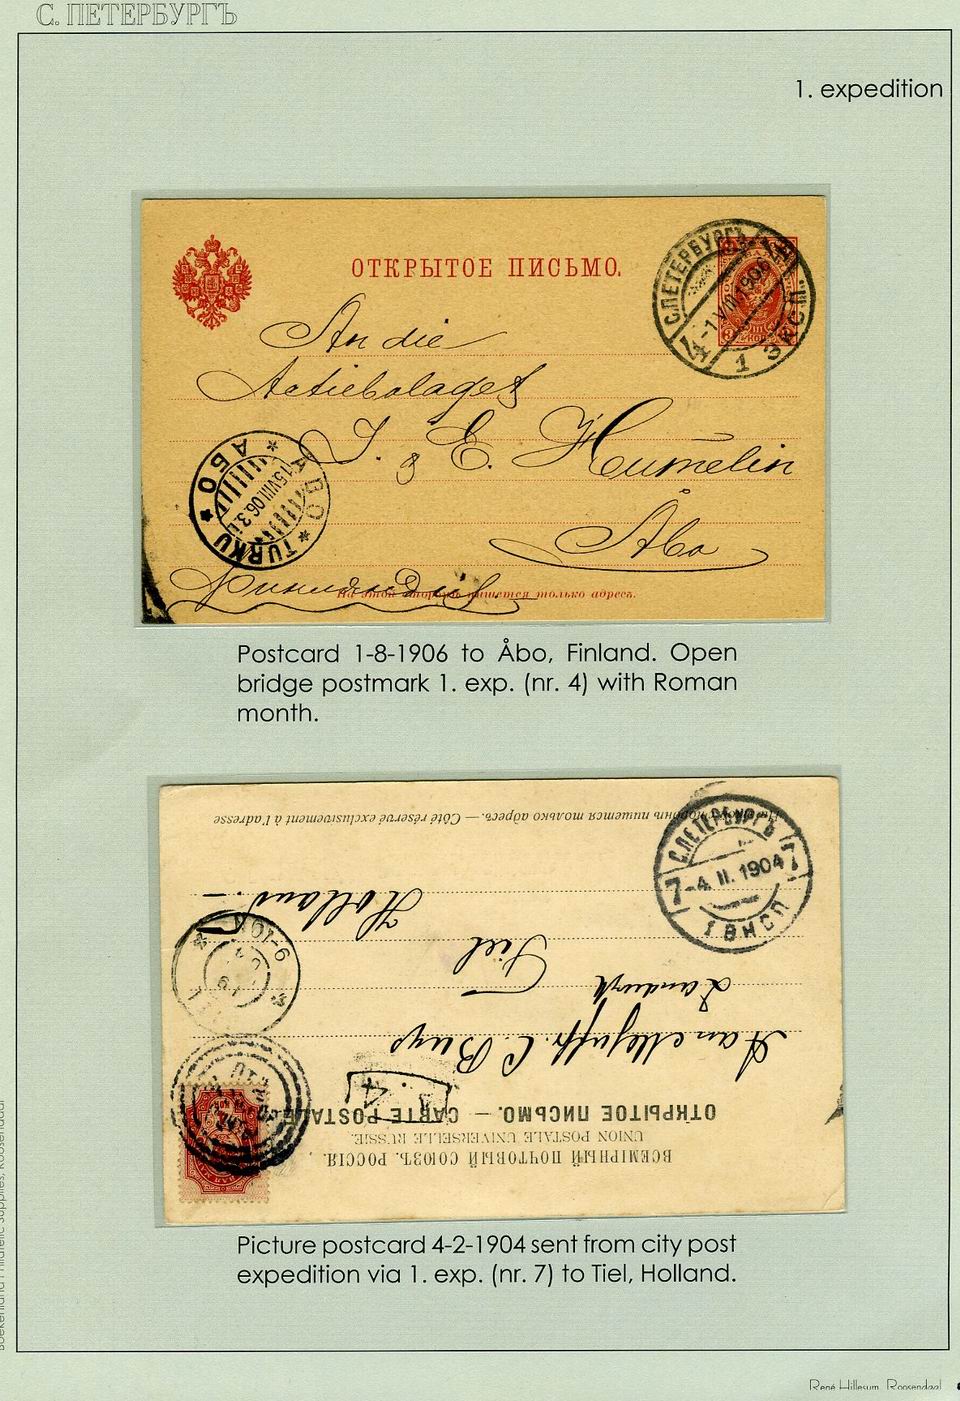 С. ПЕТЕРБУРГЪ
1. expedition
ОТКРЫТОЕ ПИСЬМО.
С.ПЕТЕРБУРГЪ
-1 VIII 1906
1 ЭКСП
An die
Actiebolaget
J. & E. Humelin
Åbo
Финляндія
ABO * TURKU * АБО *
15 VIII.06.3.
На этой сторонѣ пишется только адресъ.
Postcard 1-8-1906 to Åbo, Finland. Open
bridge postmark 1. exp. (nr. 4) with Roman
month.
ВСЕМІРНЫЙ ПОЧТОВЫЙ СОЮЗЪ. РОССІЯ.
UNION POSTALE UNIVERSELLE RUSSIE.
ОТКРЫТОЕ ПИСЬМО. — CARTE POSTALE
4
Aan Mejuff. C. Buys
Tiel
Holland. —
9-10
С.ПЕТЕРБУРГЪ
7 -4. II. 1904 7
пишется только адресъ. — Côté réservé exclusivement à l'adresse
Picture postcard 4-2-1904 sent from city post
expedition via 1. exp. (nr. 7) to Tiel, Holland.
René Hillesum, Roosendaal